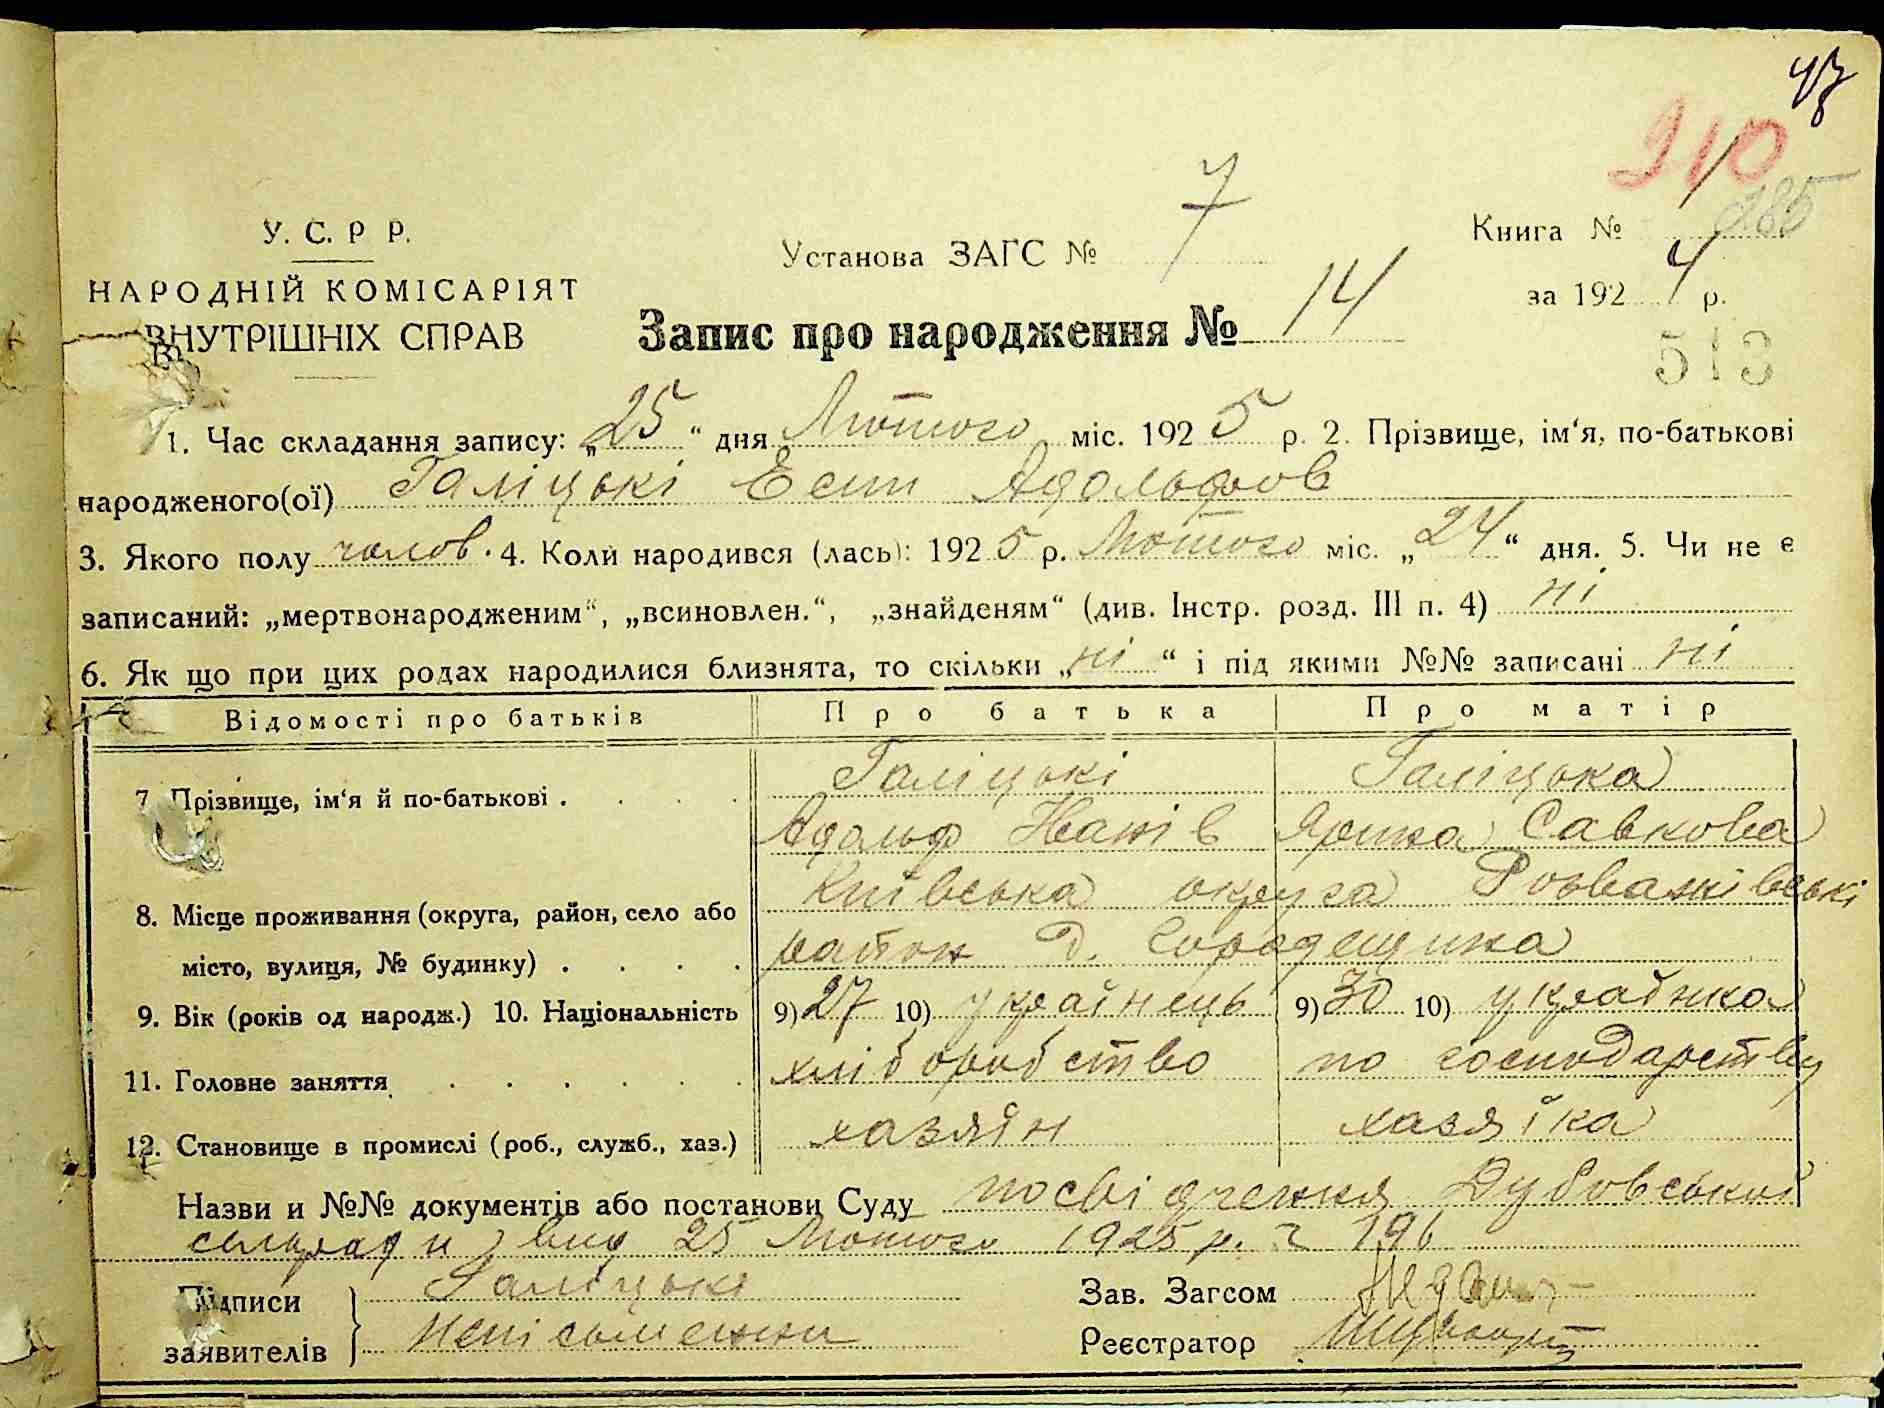 43
210
185
У. С. Р Р.
НАРОДНІЙ КОМІСАРІЯТ
ВНУТРІШНІХ СПРАВ
Установа ЗАГС № 7
Книга № 1
за 192 4 р.
Запис про народження № 14
513
1. Час складання запису: „25“ дня Лютого міс. 192 5 р. 2. Прізвище, ім‘я, по-батькові
народженого(ої) Галіцькі Адольфов
3. Якого полу чолов. 4. Коли народився (лась): 192 5 р. Лютого міс. „24“ дня. 5. Чи не є
записаний: „мертвонародженим“, „всиновлен.“, „знайденям“ (див. Інстр. розд. III п. 4) ні
6. Як що при цих родах народилися близнята, то скільки „ні“ і під якими №№ записані ні
Відомості про батьків Про батька Про матір
7. Прізвище, ім‘я й по-батькові . . . . Галіцькі Галіцька
Адольф Іванів Ярина Савкова
8. Місце проживання (округа, район, село або Київська округа Розважівські
місто, вулиця, № будинку) . . . . район д. Городещина
9. Вік (років од народж.) 10. Національність 9) 27 10) українець 9) 30 10) українка
11. Головне заняття . . . . . . хліборобство по господарству
12. Становище в промислі (роб., служб., хаз.) хазяїн хазяїка
Назви и №№ документів або постанови Суду посвідчення Дубовської
сельради від 25 Лютого 1925 р. 196
Підписи Галіцькі Зав. Загсом
заявителів неписьменни Реєстратор